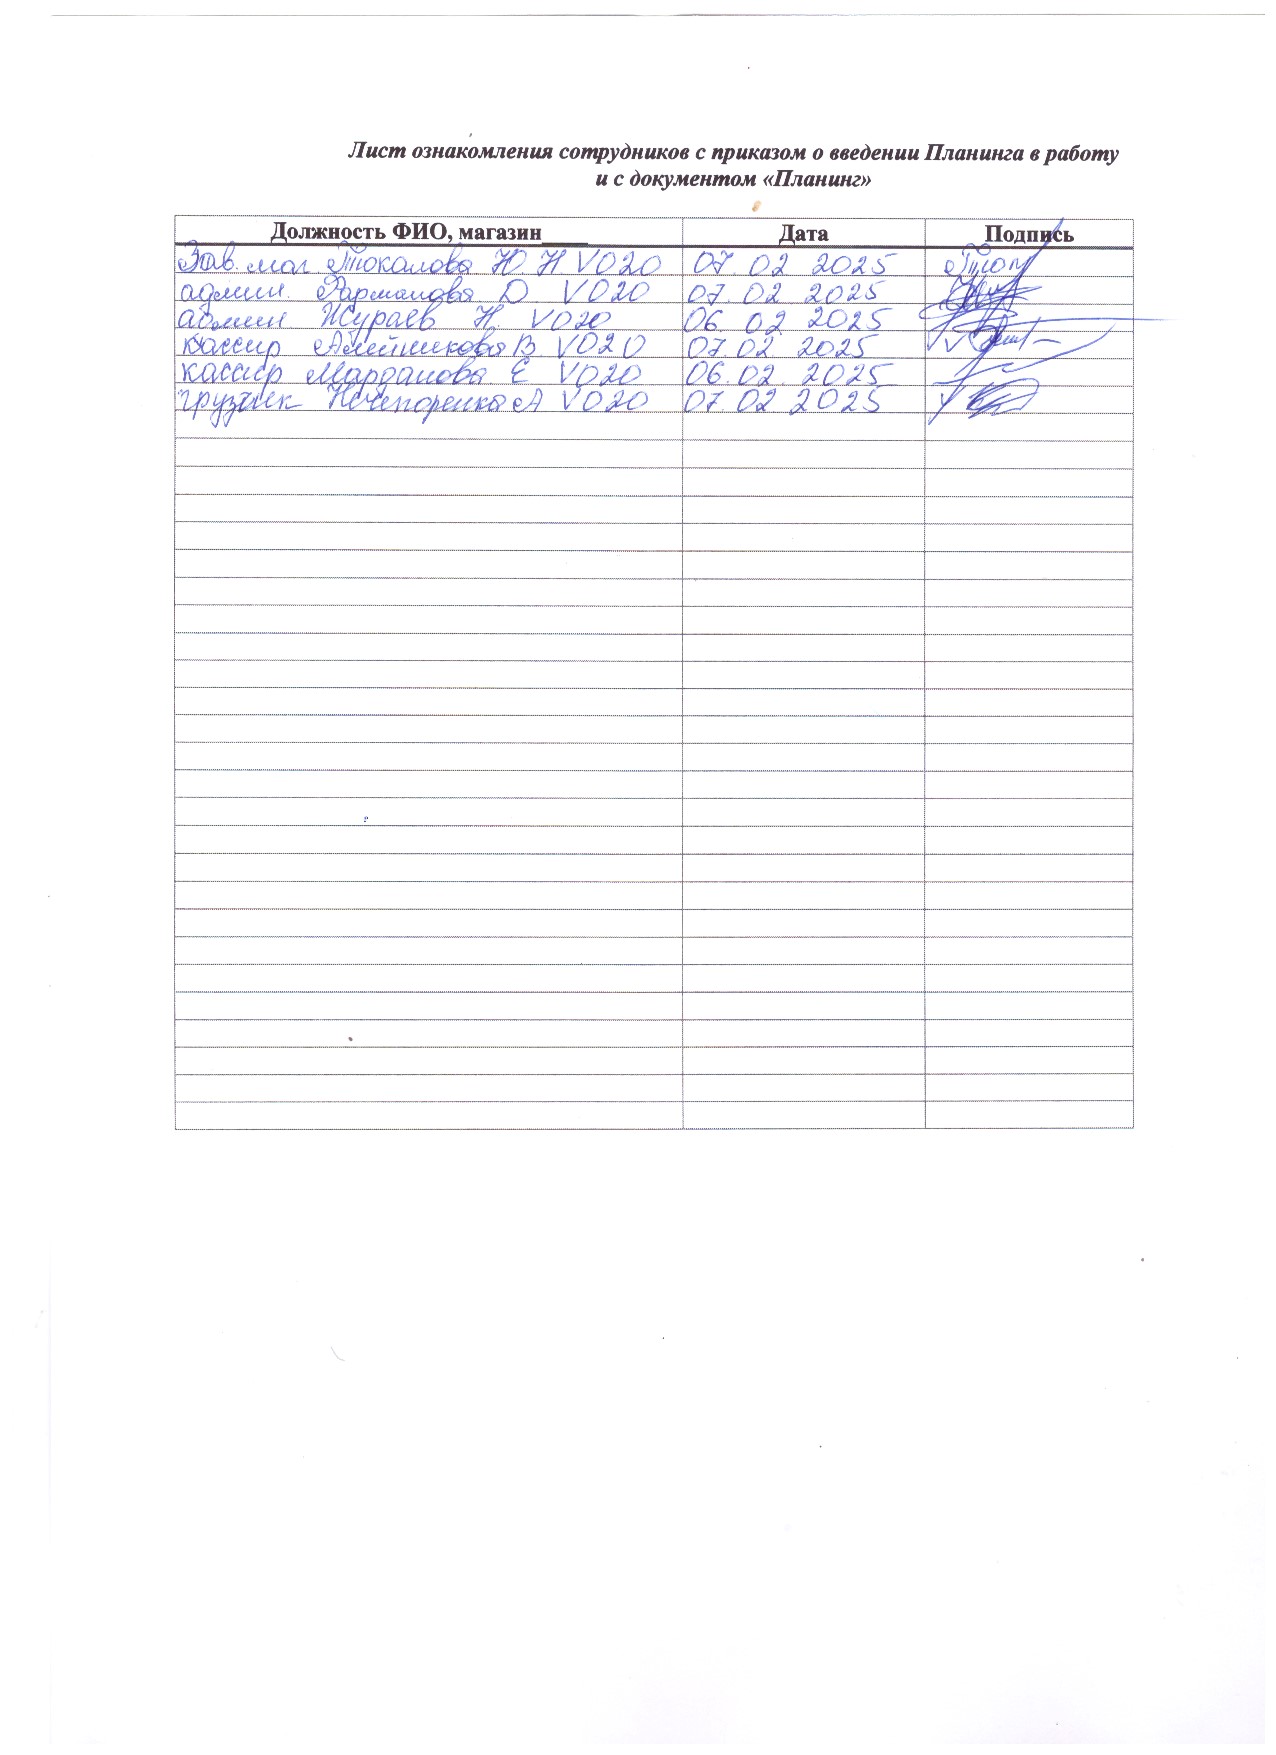 Лист ознакомления сотрудников с приказом о введении Планинга в работу
и с документом «Планинг»
Должность ФИО, магазин____ Дата Подпись
Зав. маг Токалова Ю Н V020 07. 02 2025
админ. Фарманова D. V020 07. 02 2025
админ Жураев Н. V020 06. 02 2025
кассир В V020 07. 02. 2025
кассир Марданова Е V020 06. 02. 2025
грузчик Нечепоренко А V020 07. 02 2025